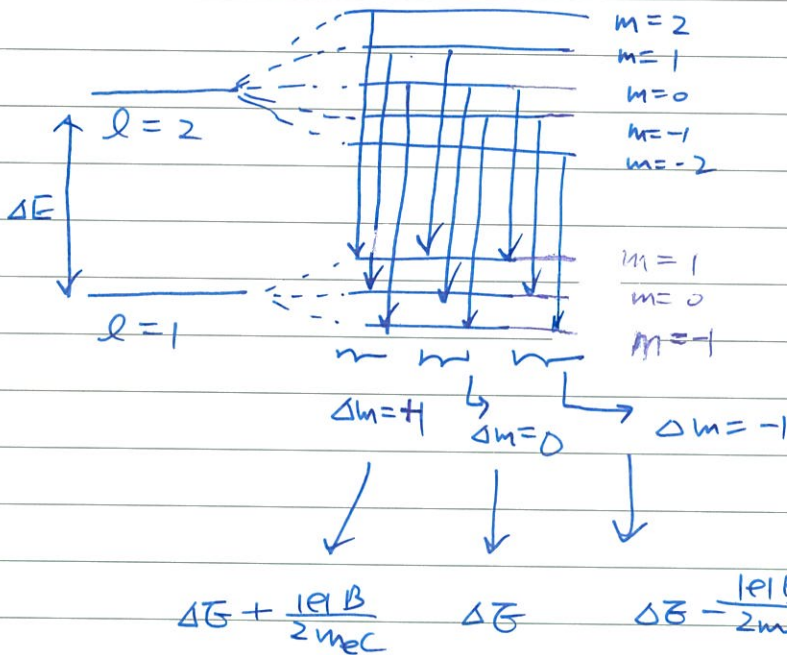 m = 2
m = 1
m = 0
m = -1
m = -2
l = 2
ΔE
m = 1
m = 0
m = -1
l = 1
Δm = +1
Δm = 0
Δm = -1
ΔE + |e|B / 2mₑc
ΔE
ΔE - |e| / 2m